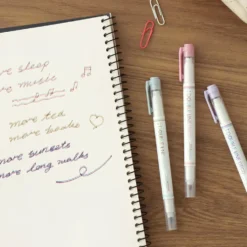 more sleep
more music
more tea
more books
more sunsets
more long walks